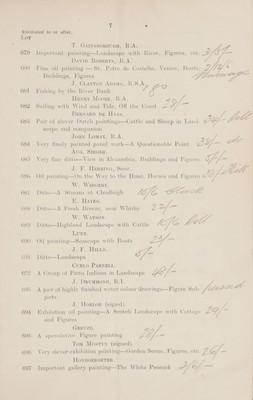 7
Attributed to or after.
LOT
T. GAINSBOROUGH, R.A.
679 Important painting—Landscape with River, Figures, etc.
DAVID ROBERTS, R.A.
680 Fine oil painting — St. Pedro de Castello, Venice, Boats, Buildings, Figures
J. CLAYTON ADAMS, R.S.A.
681 Fishing by the River Bank
HENRY MOORE, R.A.
682 Sailing with Wind and Tide, Off the Coast
BERNARD DE HALL.
683 Pair of clever Dutch paintings—Cattle and Sheep in Landscape and companion
JOHN LOMAX, R.A.
684 Very finely painted panel work—A Questionable Point
AUG. SIEGEN.
685 Very fine ditto—View in Alexandria, Buildings and Figures 5/-
J. F. HERRING, SENR.
686 Oil painting—On the Way to the Hunt, Horses and Figures
W. WIDGERY.
687 Ditto—A Stream at Chudleigh
E. HAYES.
688 Ditto—A Fresh Breeze, near Whitby 22/-
W. WATSON.
689 Ditto—Highland Landscape with Cattle
LUNY.
690 Oil painting—Seascape with Boats
J. F. HILLS.
691 Ditto—Landscape
CURLO PARNELL.
692 A Group of Pietà Indians in Landscape
J. DRUMMOND, R.I.
693 A pair of highly finished water colour drawings—Figure Subjects
J. HORLOR (signed).
694 Exhibition oil painting—A Scotch Landscape with Cottage and Figures
GREUZE.
695 A speculative Figure painting
TOM MOSTYN (signed).
696 Very clever exhibition painting—Garden Scene, Figures, etc.
HONDEKOETER.
697 Important gallery painting—The White Peacock